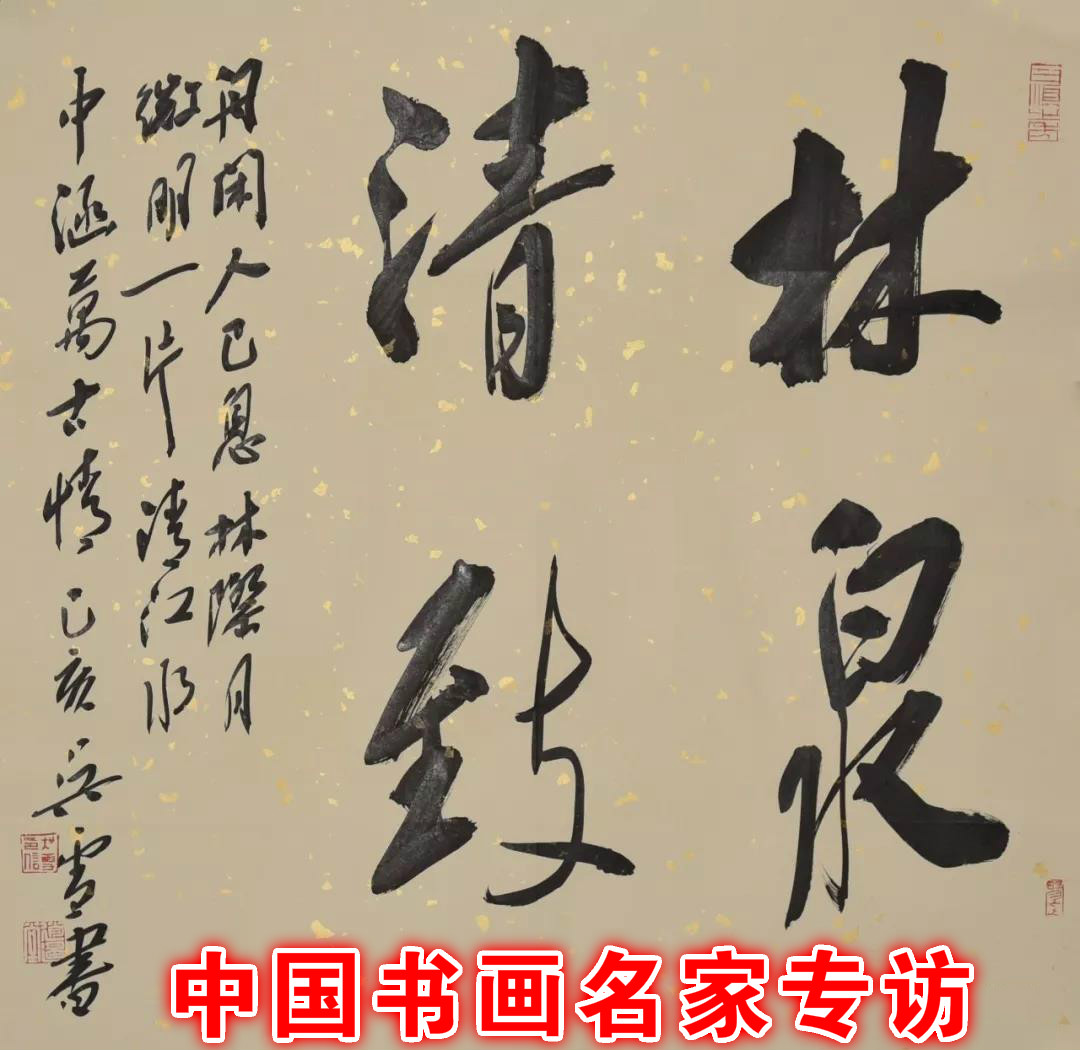 林泉
清致
舟閑人已息林際月
微明一片清江水
中涵萬古情己亥雪書
中国书画名家专访